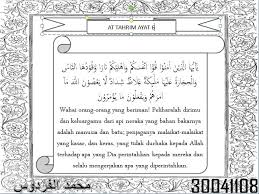 AT TAHRIM AYAT 6
يَٰٓأَيُّهَا ٱلَّذِينَ ءَامَنُوا۟ قُوٓا۟ أَنفُسَكُمْ وَأَهْلِيكُمْ نَارًا وَقُودُهَا ٱلنَّاسُ
وَٱلْحِجَارَةُ عَلَيْهَا مَلَٰٓئِكَةٌ غِلَاظٌ شِدَادٌ لَّا يَعْصُونَ ٱللَّهَ مَآ
أَمَرَهُمْ وَيَفْعَلُونَ مَا يُؤْمَرُونَ
Wahai orang-orang yang beriman! Peliharalah dirimu
dan keluargamu dari api neraka yang bahan bakarnya
adalah manusia dan batu; penjaganya malaikat-malaikat
yang kasar, dan keras, yang tidak durhaka kepada Allah
terhadap apa yang Dia perintahkan kepada mereka dan
selalu mengerjakan apa yang diperintahkan.
محمد الفردوس 30041108